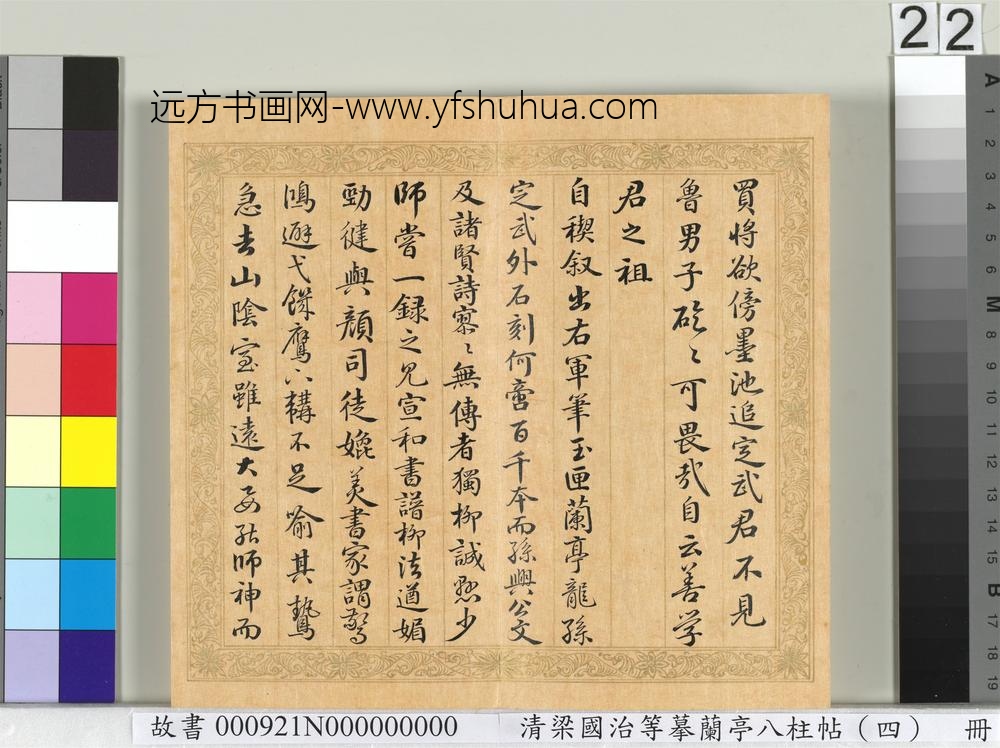 22
远方书画网-www.yfshuhua.com
買將欲傍墨池追定武君不見
魯男子硁〻可畏哉自云善学
君之祖
自禊叙出右軍筆玉匣蘭亭龍孫
定武外石刻何啻百千本而孫興公文
及諸賢詩寥〻無傳者獨柳誠懸少
師嘗一録之見宣和書譜柳法遒媚
勁健與顔司徒媲美書家謂驚
鴻避弋饑鷹下韝不足喻其鷙
急去山陰室雖遠大要能師神而
故書 000921N000000000
清梁國治等摹蘭亭八柱帖（四） 冊
A 1 2 3 4 5 6 M 8 9 10 11 12 13 14 15 B 17 18 19